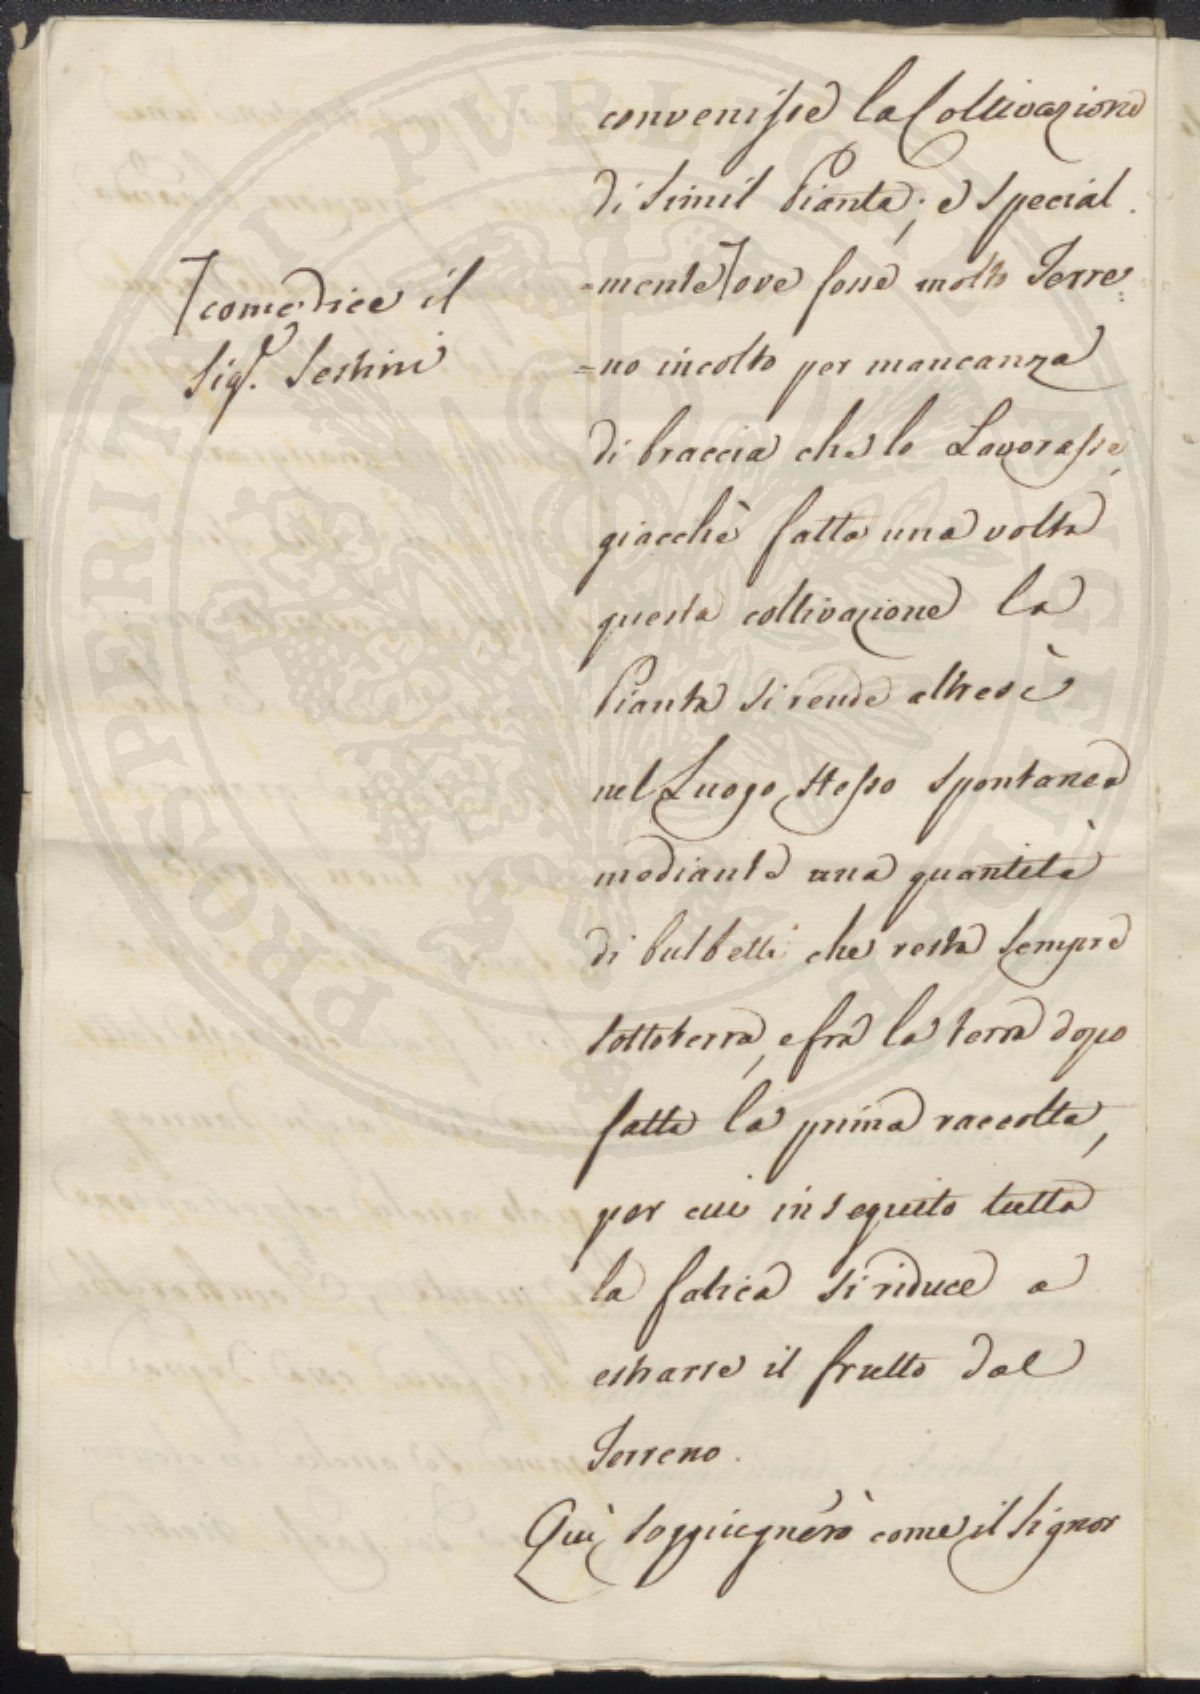 convenisse la Coltivazione
di simil Pianta; e special
=mente ove fosse molto Terre=
come dice il
Sig.r Sestini
=no incolto per mancanza
di braccia che lo Lavorasse,
giacchè fatta una volta
questa coltivazione la
Pianta si rende altresì
nel Luogo stesso spontanea
mediante una quantità
di bulbetti che resta sempre
sottoterra, e fra la terra dopo
fatta la prima raccolta,
per cui in seguito tutta
la fatica si riduce a
estrarre il frutto dal
Terreno.
Quì soggiugnerò come il Signor
PROSPERITATI PUBLICAE AUGENDAE